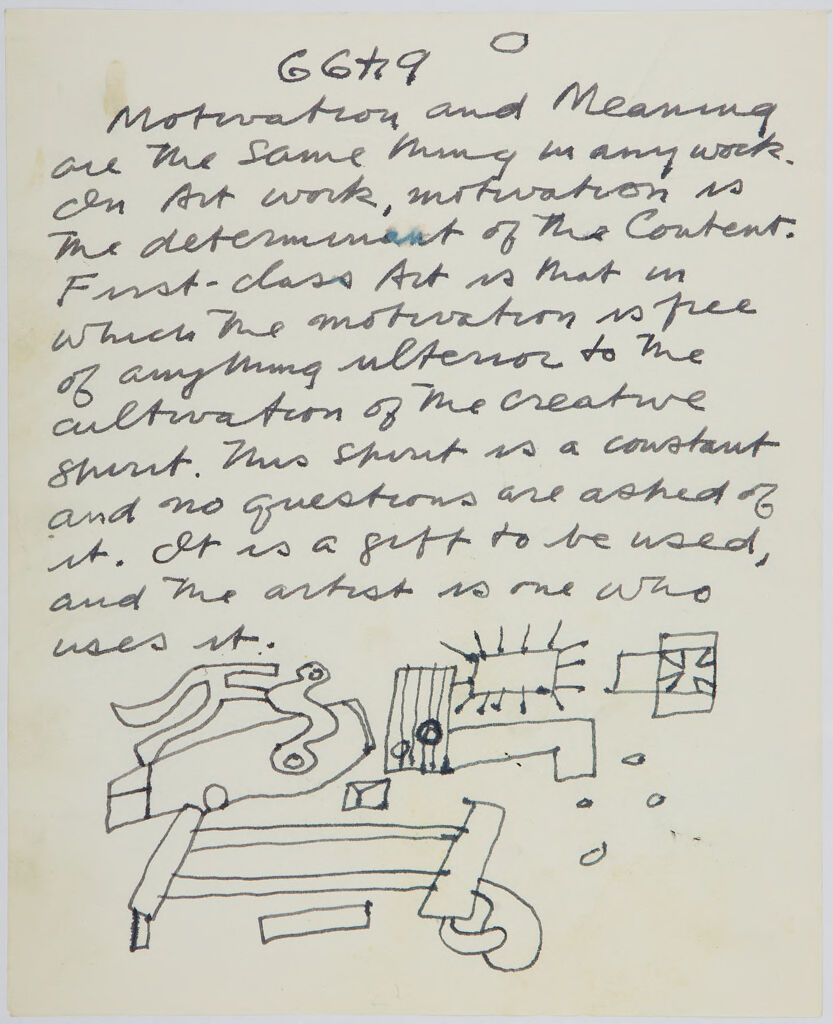 66+9
Motivation and Meaning
are the same thing in any work.
In Art work, motivation is
the determinant of the Content.
First-class Art is that in
which the motivation is free
of anything ulterior to the
cultivation of the creative
spirit. This spirit is a constant
and no questions are asked of
it. It is a gift to be used,
and the artist is one who
uses it.